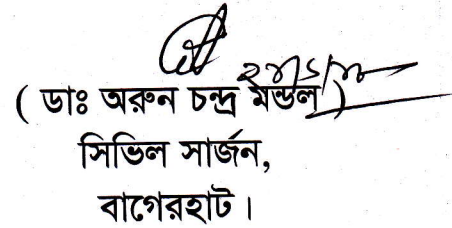 ( ডাঃ অরুন চন্দ্র মন্ডল )
সিভিল সার্জন,
বাগেরহাট।